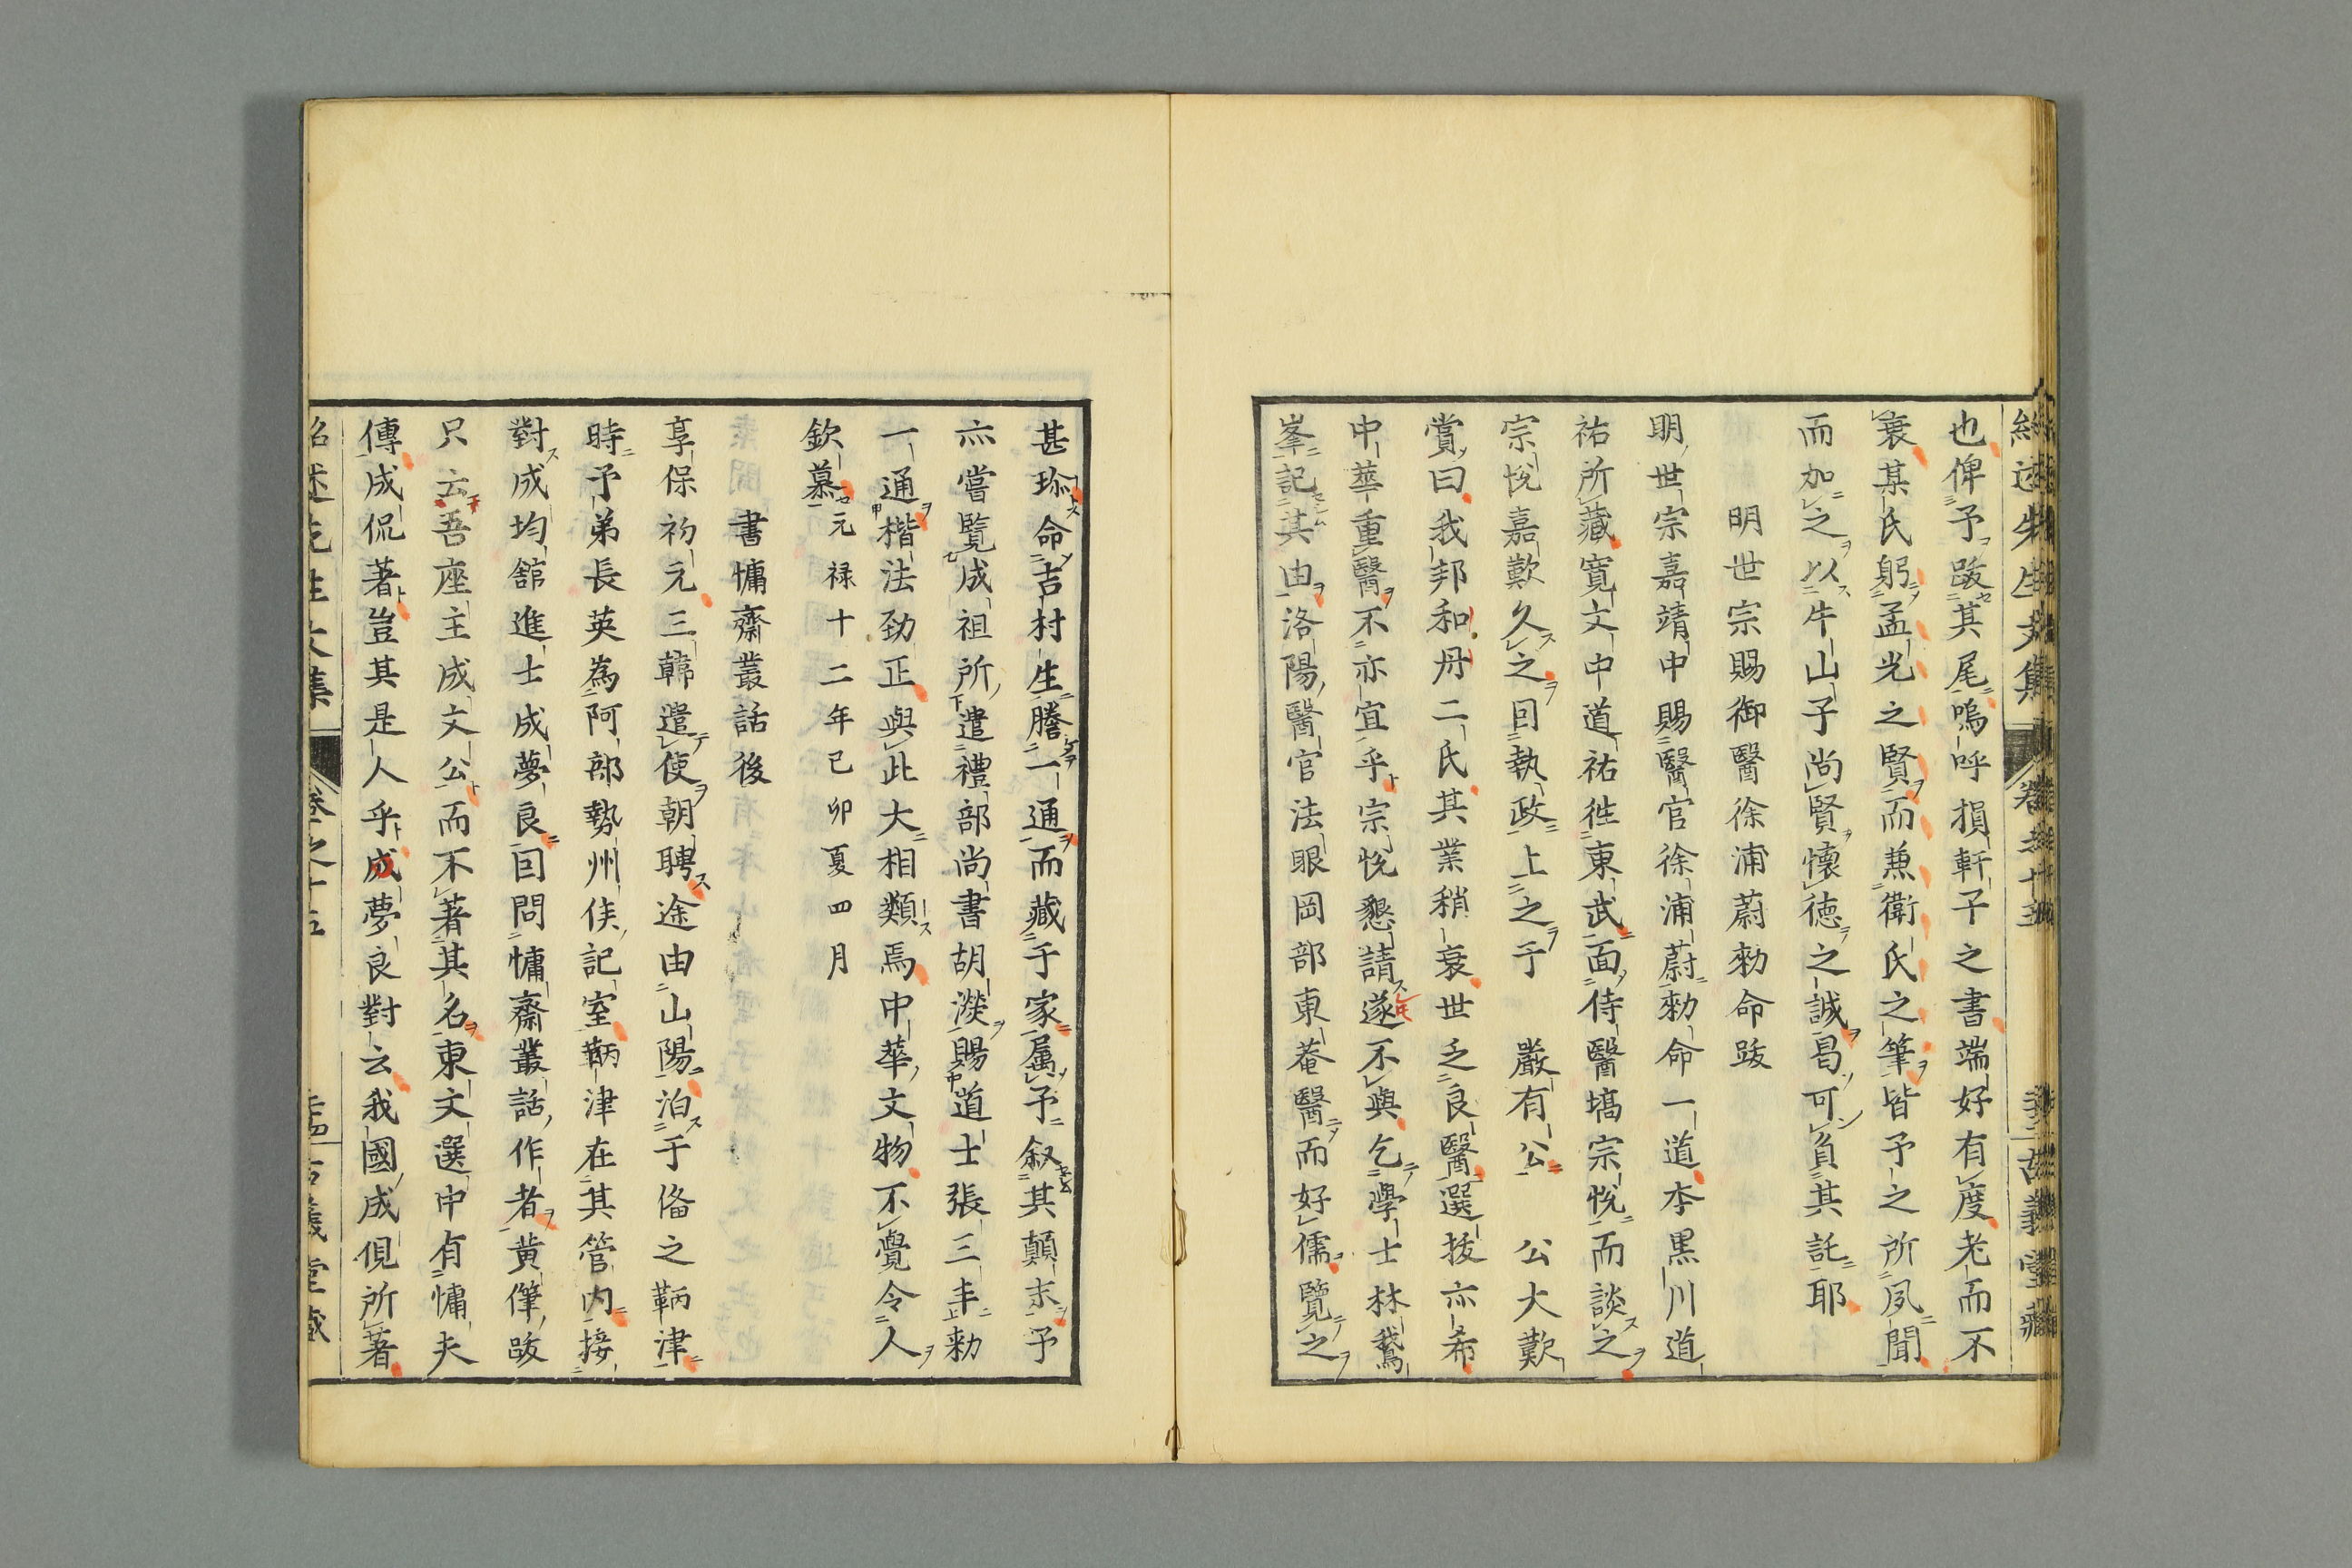 也俾予跋其尾嗚呼損軒子之書端好有度老而不
衰某氏躬孟光之賢而兼衛氏之筆皆予之所夙聞
而加之以牛山子尚賢懷德之誠曷可負其託耶
明世宗賜御醫徐浦蔚勑命跋
明世宗嘉靖中賜醫官徐浦蔚勑命一道本黒川道
祐所藏寬文中道祐徃東武面侍醫塙宗悅而談之
宗悅嘉歎久之因執政上之于 嚴有公 公大歎
賞曰我邦和丹二氏其業稍衰世乏良醫選拔亦希
中華重醫不亦宜乎宗悅懇請遂不與乞學士林鵞
峯記其由洛陽醫官法眼岡部東菴醫而好儒覽之
甚珎命吉村生謄一通而藏于家属予叙其顛末予
亦嘗覽成祖所遣禮部尚書胡濙賜道士張三丰勑
一通楷法勁正與此大相類焉中華文物不覺令人
欽慕元禄十二年己卯夏四月
書慵齋叢話後
享保初元三韓遣使朝聘途由山陽泊于俻之鞆津
時予弟長英為阿部勢州侯記室鞆津在其管内接
對成均舘進士成夢良因問慵齋叢話作者黄㒓跋
只云吾座主成文公而不著其名東文選中有慵夫
傳成侃著豈其是人乎成夢良對云我國成俔所著
紹述先生文集 卷之十五 古義堂藏